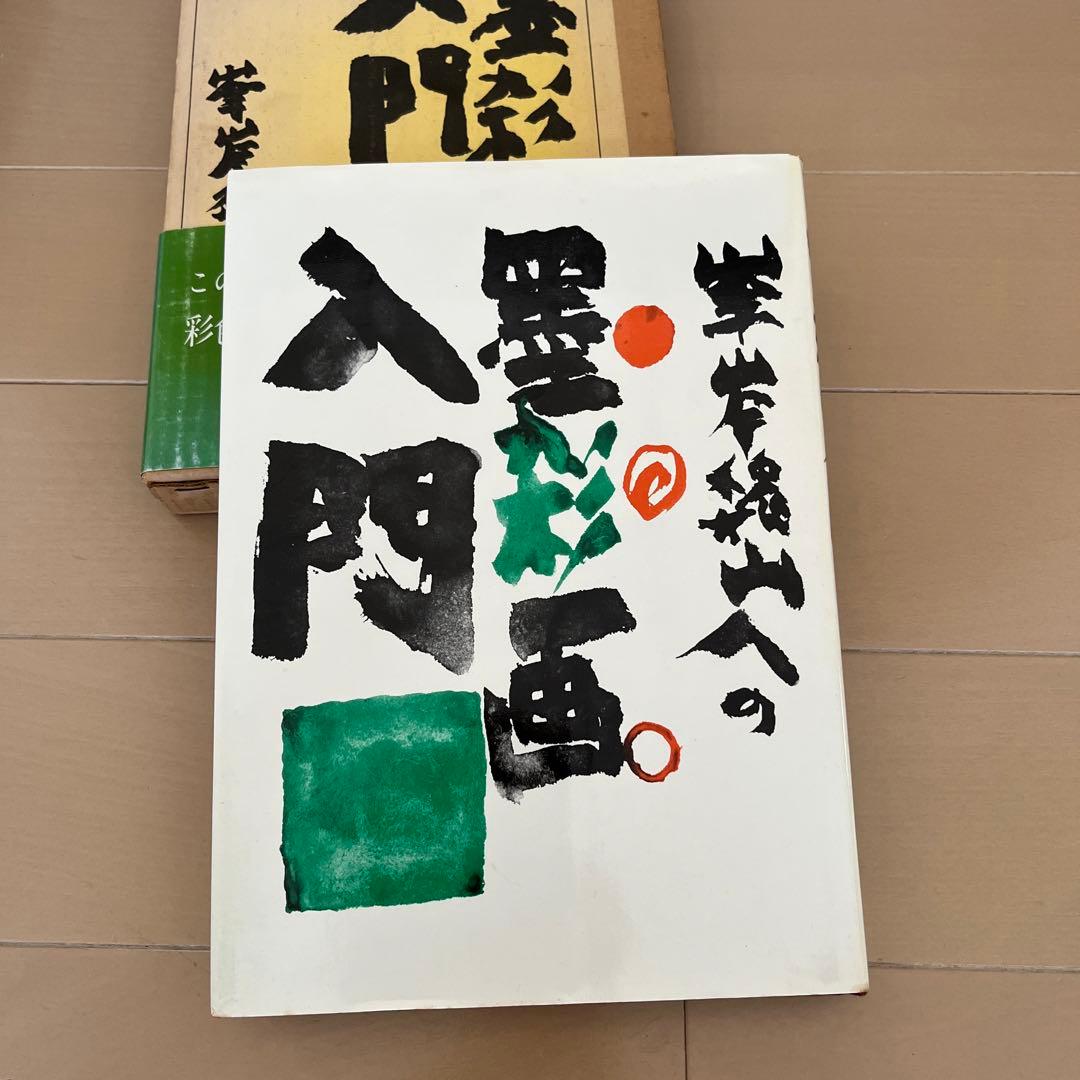 峯岸魏山人の
墨彩画
入門
墨彩
入門
峯岸
この
彩